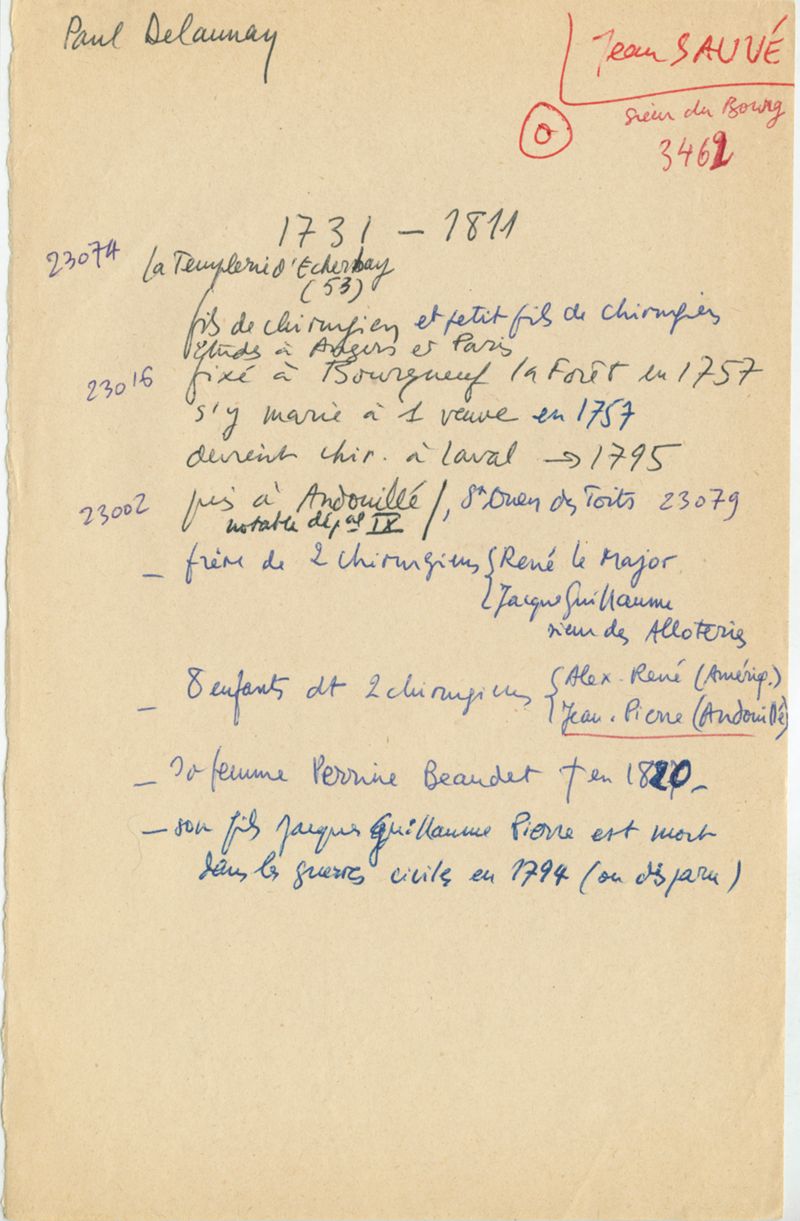 Paul Delaunay
Jean SAUVÉ
sieur du Bourg
O
3462
1731 – 1811
23074 la Templerie d'Echerbay
(53)
fils de chirurgien et petit fils de chirurgien
études à Angers et Paris
23016 fixé à Bourgneuf la Forêt en 1757
s'y marie à 1 veuve en 1757
devient chir. à Laval → 1795
23002 puis à Andouillé /, St Ouen des Toits 23079
notable dép al IX
– frère de 2 chirurgiens { René le Major
{ Jacques Guillaume
sieur des Alloteries
– 8 enfants dt 2 chirurgiens { Alex. René (Amériq.)
{ Jean-Pierre (Andouillé)
– sa femme Perrine Beaudet † en 1820 –
– son fils Jacques Guillaume Pierre est mort
dans les guerres civiles en 1794 (ou disparu)